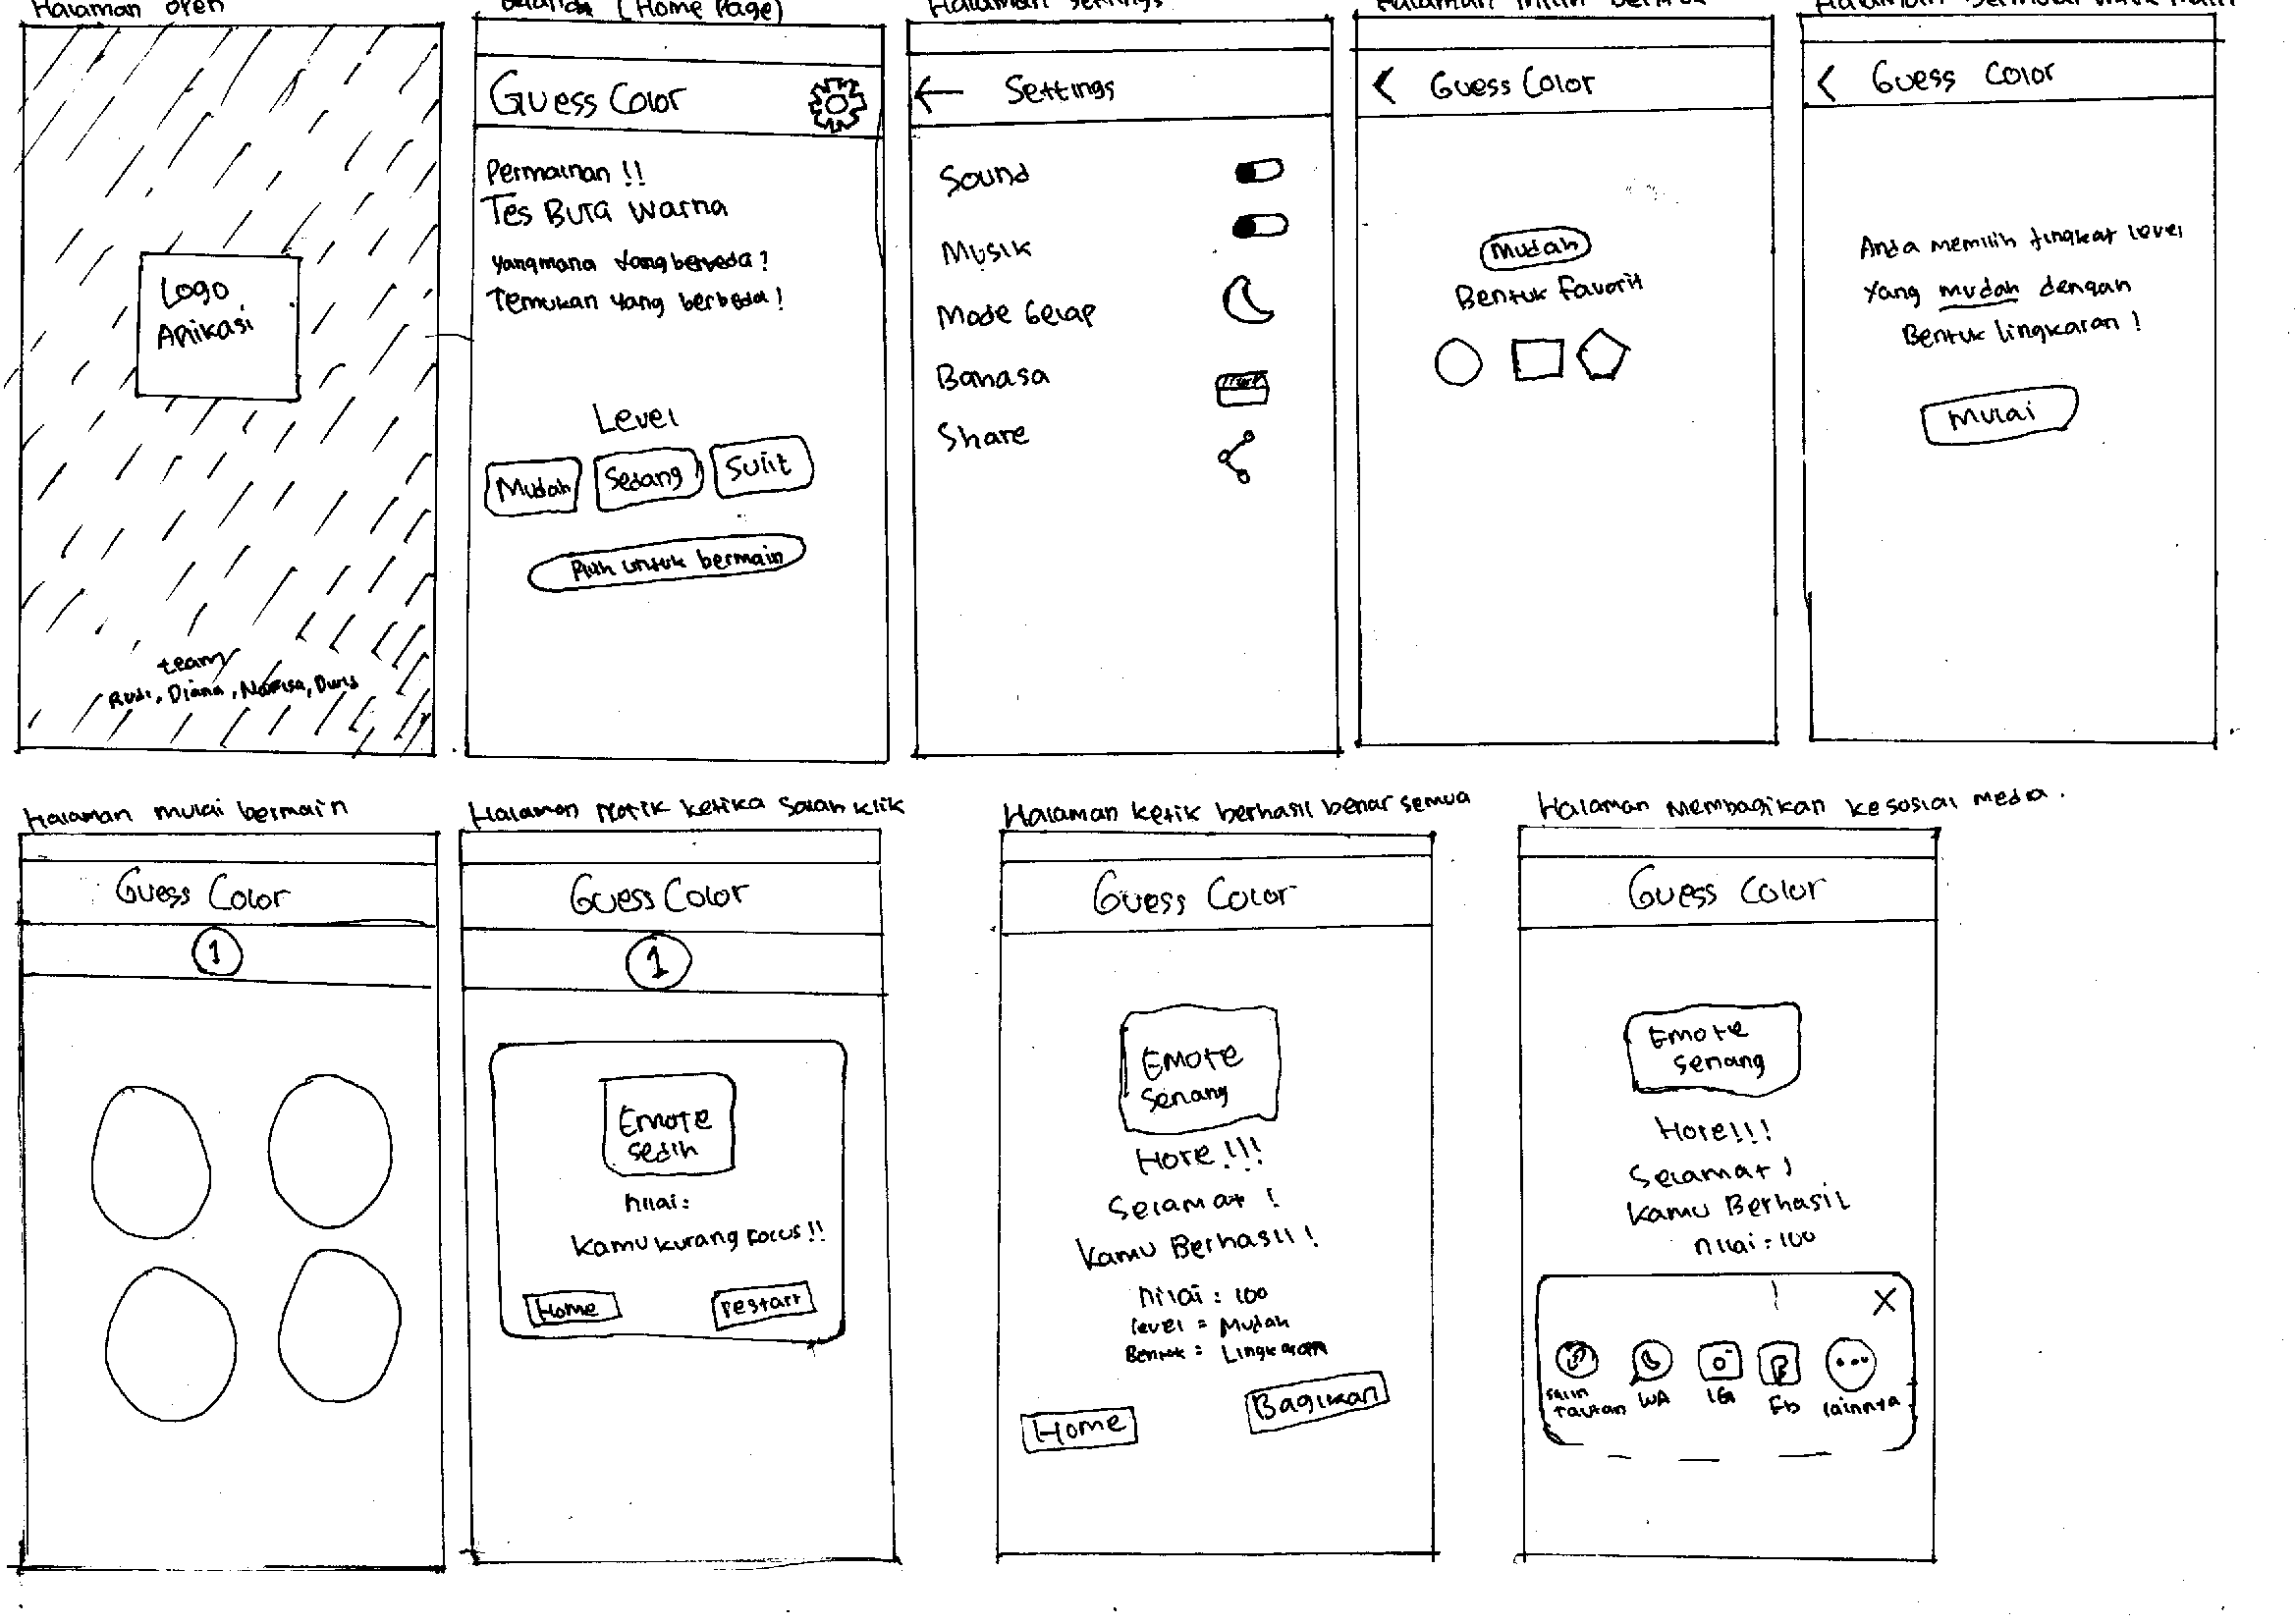 Halaman open
(Home Page)
Halaman settings
Logo
Aplikasi
team
Rudi, Diana, Nafisa,
Guess Color
Permainan !!
Tes Buta Warna
Yang mana yang berbeda ?
Temukan yang berbeda !
Level
Mudah
Sedang
Sulit
Pilih untuk bermain
Settings
Sound
Musik
Mode Gelap
Bahasa
Share
Guess Color
Mudah
Bentuk Favorit
Guess Color
Anda memilih tingkat level
Yang mudah dengan
Bentuk lingkaran !
Mulai
Halaman mulai bermain
Guess Color
1
Halaman Notik ketika salah klik
Guess Color
1
Emote
sedih
nilai :
Kamu kurang Focus !!
Home
restart
Halaman ketik berhasil benar semua
Guess Color
Emote
Senang
Hore !!!
Selamat !
Kamu Berhasil !
nilai : 100
level = Mudah
Bentuk : Lingkaran
Home
Bagikan
Halaman Membagikan ke sosial media .
Guess Color
Emote
Senang
Hore!!!
Selamat !
Kamu Berhasil
nilai = 100
X
Salin
Tautan
WA
IG
Fb
lainnya